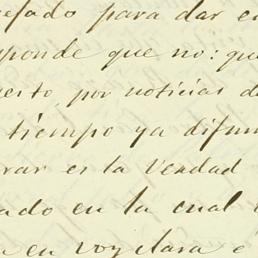 para dar
ponde que no: que
por noticias de
tiempo ya difun
rar es la verdad
ado en la cual
en voz clara e